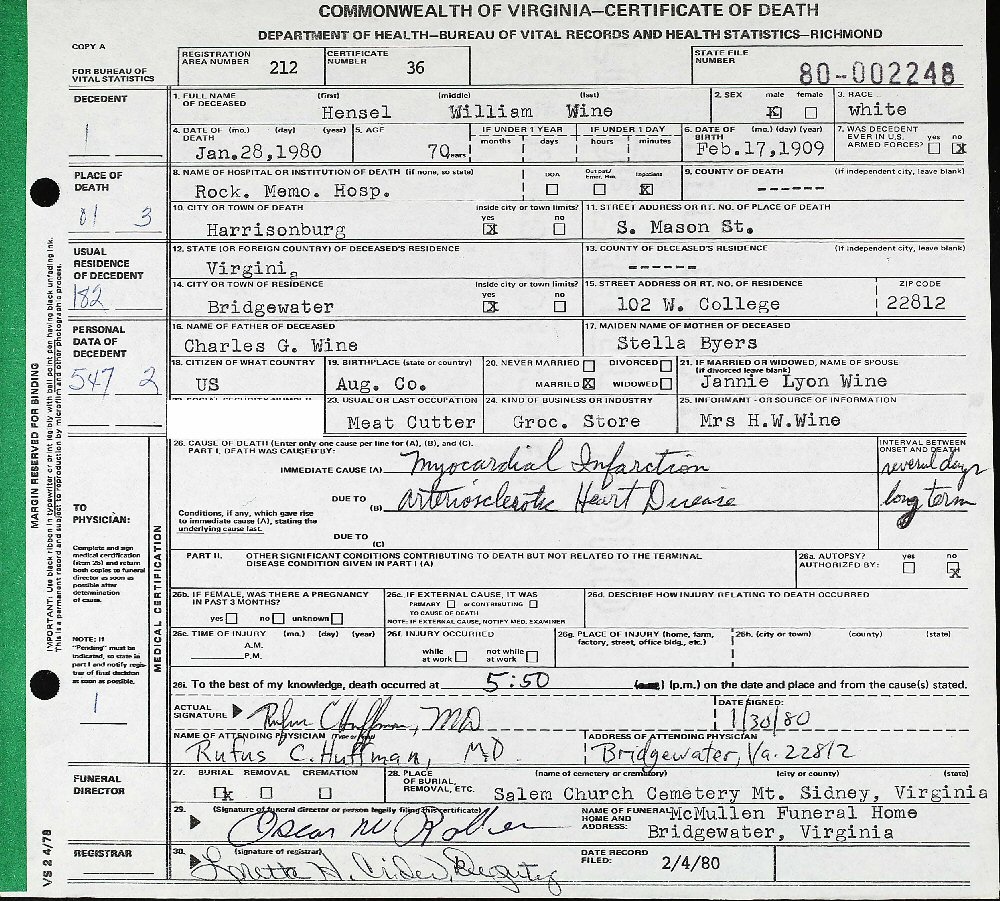 COMMONWEALTH OF VIRGINIA—CERTIFICATE OF DEATH
DEPARTMENT OF HEALTH—BUREAU OF VITAL RECORDS AND HEALTH STATISTICS—RICHMOND
COPY A
FOR BUREAU OF VITAL STATISTICS
REGISTRATION AREA NUMBER 212
CERTIFICATE NUMBER 36
STATE FILE NUMBER 80-002248
DECEDENT
1
1. FULL NAME OF DECEASED (first) (middle) (last)
Hensel William Wine
2. SEX male female
X
3. RACE
white
4. DATE OF DEATH (mo.) (day) (year)
Jan.28,1980
5. AGE
70 years
IF UNDER 1 YEAR months days
IF UNDER 1 DAY hours minutes
6. DATE OF BIRTH (mo.) (day) (year)
Feb.17,1909
7. WAS DECEDENT EVER IN U.S. ARMED FORCES? yes no
X
PLACE OF DEATH
01 3
8. NAME OF HOSPITAL OR INSTITUTION OF DEATH (if none, so state)
Rock. Memo. Hosp.
DOA Out pat/ Emer. Rm. Inpatient
X
9. COUNTY OF DEATH (if independent city, leave blank)
------
10. CITY OR TOWN OF DEATH
Harrisonburg
inside city or town limits? yes no
X
11. STREET ADDRESS OR RT. NO. OF PLACE OF DEATH
S. Mason St.
USUAL RESIDENCE OF DECEDENT
182
12. STATE (OR FOREIGN COUNTRY) OF DECEASED'S RESIDENCE
Virginia
13. COUNTY OF DECEASED'S RESIDENCE (if independent city, leave blank)
------
14. CITY OR TOWN OF RESIDENCE
Bridgewater
inside city or town limits? yes no
X
15. STREET ADDRESS OR RT. NO. OF RESIDENCE
102 W. College
ZIP CODE
22812
PERSONAL DATA OF DECEDENT
547 2
16. NAME OF FATHER OF DECEASED
Charles G. Wine
17. MAIDEN NAME OF MOTHER OF DECEASED
Stella Byers
18. CITIZEN OF WHAT COUNTRY
US
19. BIRTHPLACE (state or country)
Aug. Co.
20. NEVER MARRIED DIVORCED
MARRIED X WIDOWED
21. IF MARRIED OR WIDOWED, NAME OF SPOUSE (if divorced leave blank)
Jennie Lyon Wine
23. USUAL OR LAST OCCUPATION
Meat Cutter
24. KIND OF BUSINESS OR INDUSTRY
Groc. Store
25. INFORMANT - OR SOURCE OF INFORMATION
Mrs H.W.Wine
MARGIN RESERVED FOR BINDING
IMPORTANT: Use black ribbon in typewriter or print legibly with ball point pen having black unfading ink.
This is a permanent record and subject to reproduction by microfilm and other photographic process.
VS 2 4/78
TO PHYSICIAN:
Complete and sign medical certification (item 26) and return both copies to funeral director as soon as possible after determination of cause.
NOTE: If "Pending" must be indicated, so state in part I and notify registrar of final decision as soon as possible.
1
MEDICAL CERTIFICATION
26. CAUSE OF DEATH (Enter only one cause per line for (A), (B), and (C).
PART I. DEATH WAS CAUSED BY:
INTERVAL BETWEEN ONSET AND DEATH
IMMEDIATE CAUSE (A) Myocardial Infarction several days
DUE TO (B) Arteriosclerotic Heart Disease long term
Conditions, if any, which gave rise to immediate cause (A), stating the underlying cause last.
DUE TO (C)
PART II. OTHER SIGNIFICANT CONDITIONS CONTRIBUTING TO DEATH BUT NOT RELATED TO THE TERMINAL DISEASE CONDITION GIVEN IN PART I (A)
26a. AUTOPSY? AUTHORIZED BY: yes no
X
26b. IF FEMALE, WAS THERE A PREGNANCY IN PAST 3 MONTHS?
yes no unknown
26c. IF EXTERNAL CAUSE, IT WAS
PRIMARY or CONTRIBUTING
TO CAUSE OF DEATH
NOTE: IF EXTERNAL CAUSE, NOTIFY MED. EXAMINER
26d. DESCRIBE HOW INJURY RELATING TO DEATH OCCURRED
26e. TIME OF INJURY (mo.) (day) (year)
A.M.
P.M.
26f. INJURY OCCURRED
while at work not while at work
26g. PLACE OF INJURY (home, farm, factory, street, office bldg., etc.)
26h. (city or town) (county) (state)
26i. To the best of my knowledge, death occurred at 5:50 (p.m.) on the date and place and from the cause(s) stated.
ACTUAL SIGNATURE Rufus C Huffman, MD
DATE SIGNED:
1/30/80
NAME OF ATTENDING PHYSICIAN (Type or Print)
Rufus C. Huffman, M.D.
ADDRESS OF ATTENDING PHYSICIAN
Bridgewater, Va. 22812
FUNERAL DIRECTOR
27. BURIAL REMOVAL CREMATION
X
28. PLACE OF BURIAL, REMOVAL, ETC. (name of cemetery or crematory) (city or county) (state)
Salem Church Cemetery Mt. Sidney, Virginia
29. (Signature of funeral director or person legally filing this certificate)
Oscar W
NAME OF FUNERAL HOME AND ADDRESS:
McMullen Funeral Home
Bridgewater, Virginia
REGISTRAR
30. (signature of registrar)
Loretta H. Crider, Deputy
DATE RECORD FILED: 2/4/80